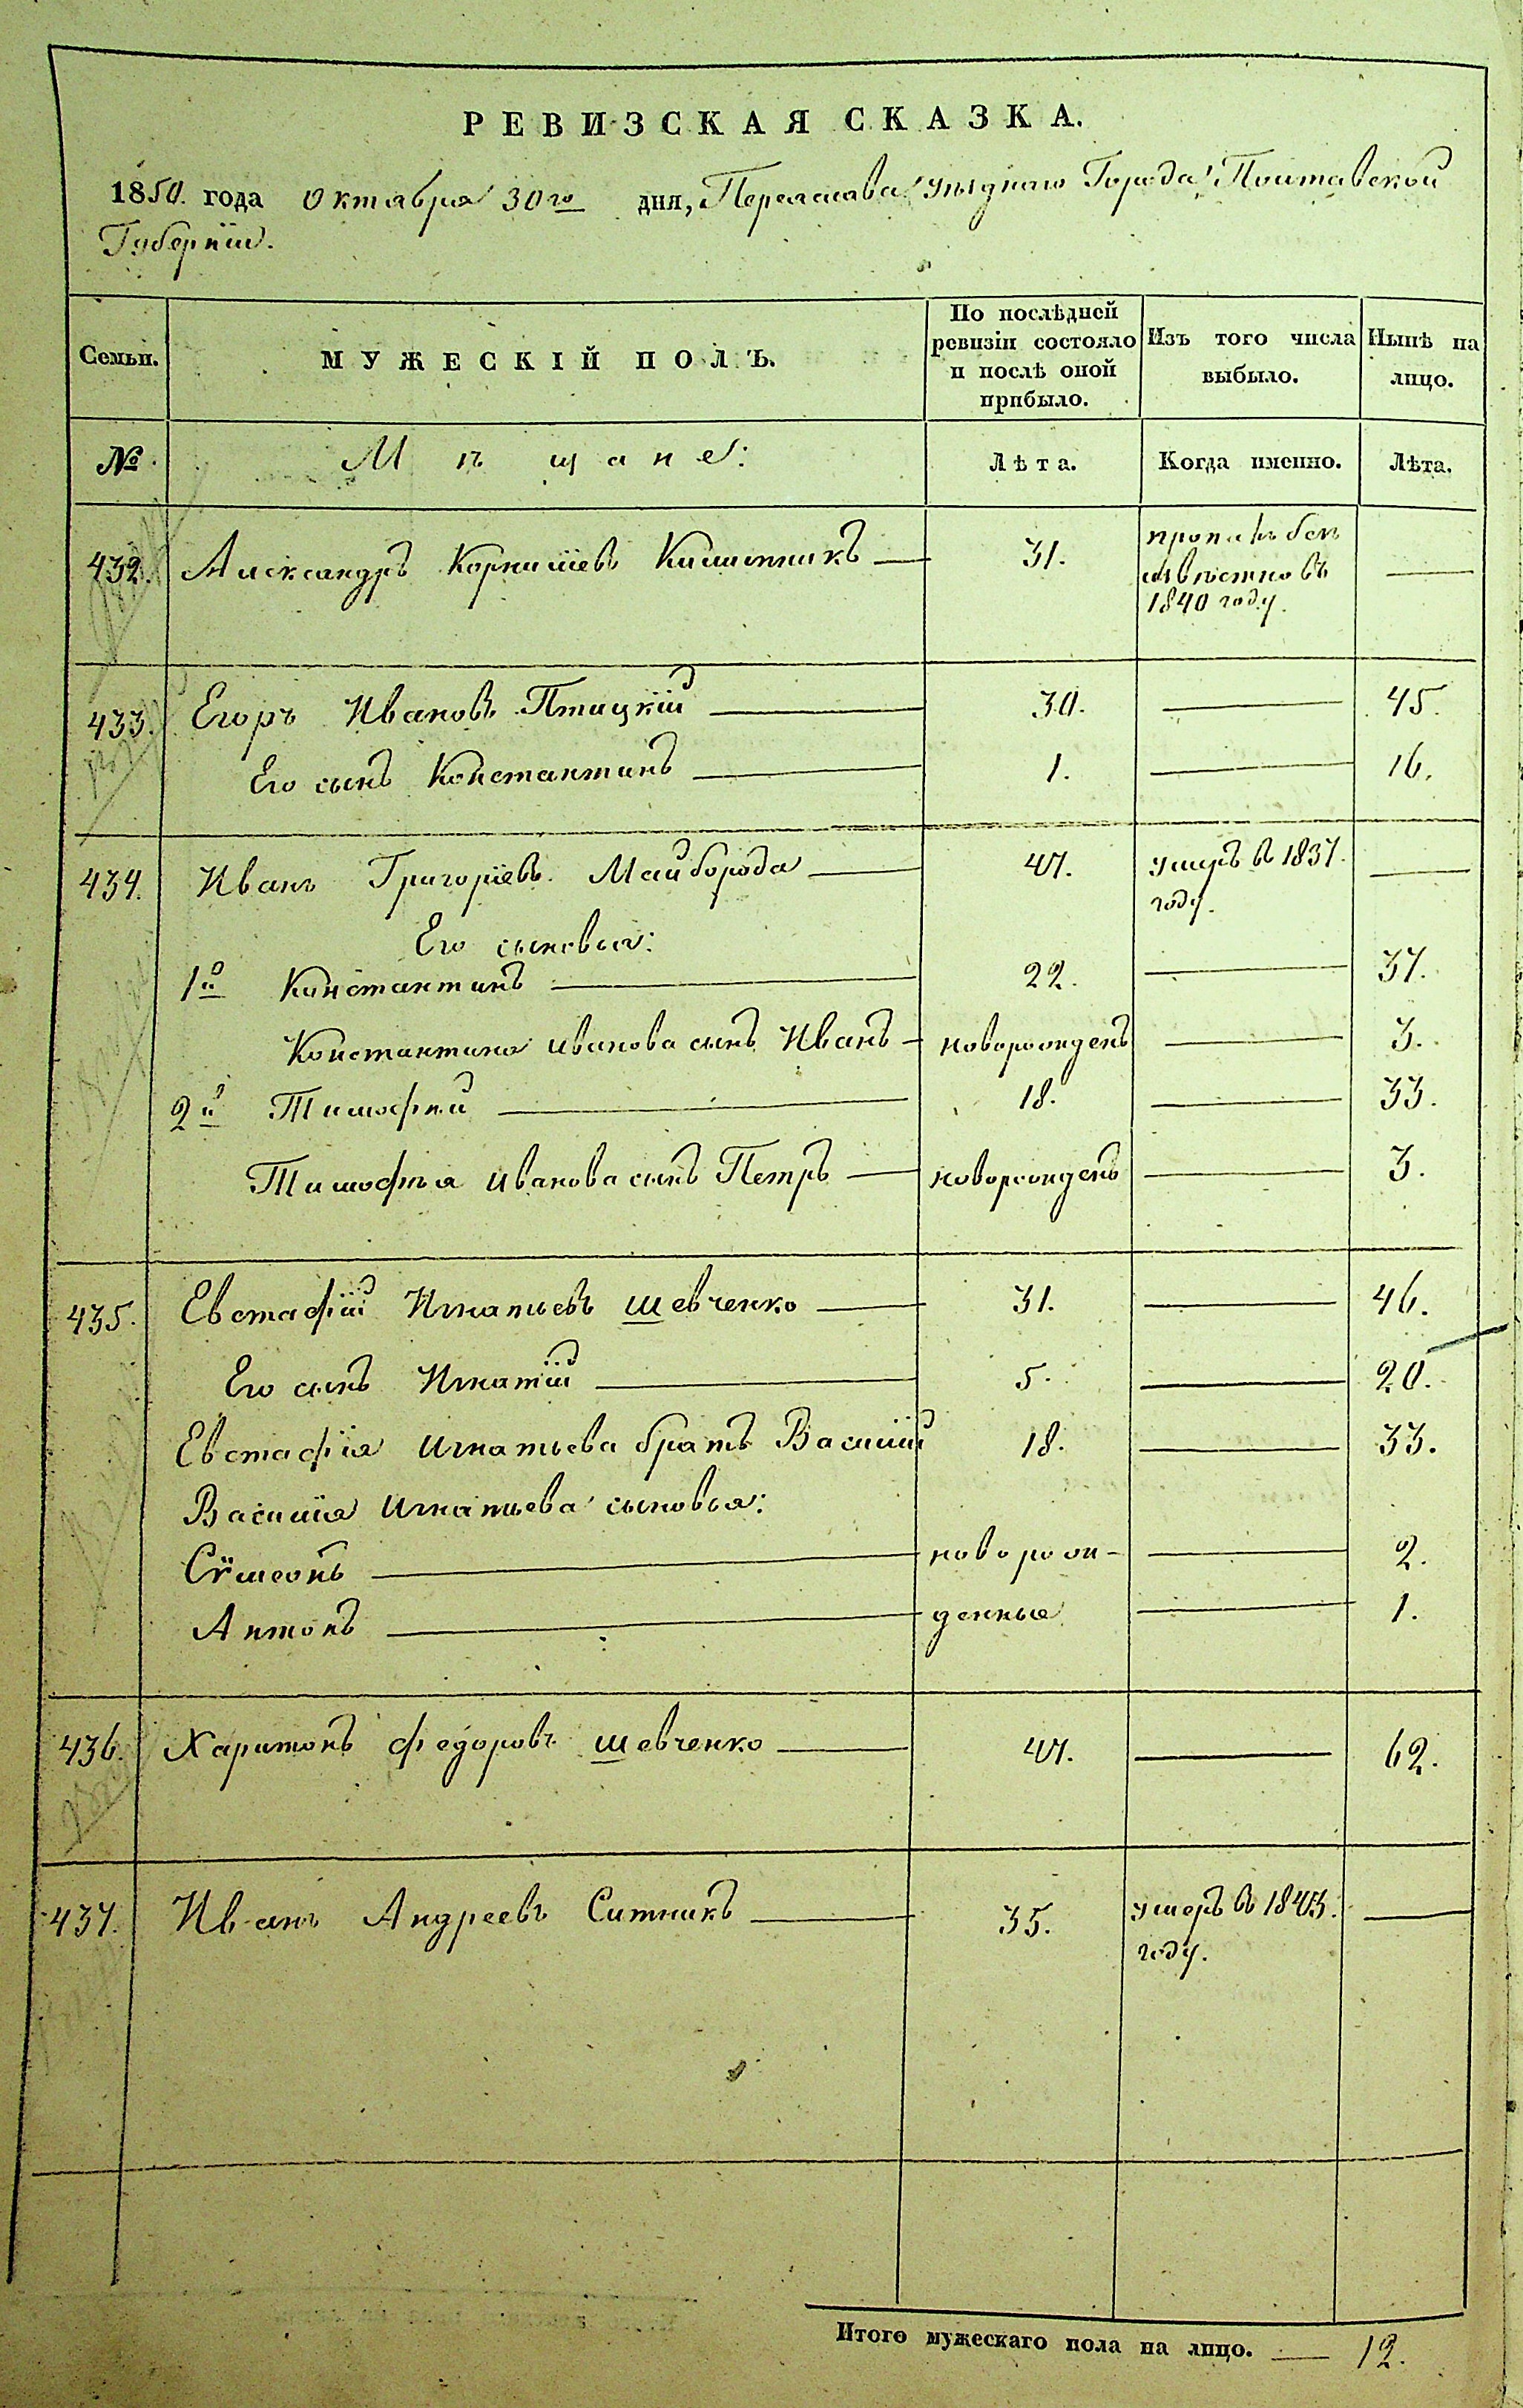 РЕВИЗСКАЯ СКАЗКА.
1850. года Октября 30го дня, Переяслава Уѣзднаго Города Полтавской
Губерніи.
Семьи.
МУЖЕСКІЙ ПОЛЪ.
По послѣдней ревизіи состояло и послѣ оной прибыло.
Изъ того числа выбыло.
Нынѣ на лицо.
№ Мѣщане: Лѣта. Когда именно. Лѣта.
432. Александръ Корнилiевъ 31. пропалъ безъ
извѣстно въ
1840 году.
433. Егоръ Ивановъ Птицкій 30. 45.
Его сынъ Константинъ 1. 16.
434. Иванъ Григоріевъ Майборода 47. умеръ въ 1837.
году.
Его сыновья:
1й Константинъ 22. 37.
Константина Иванова сынъ Иванъ новорожденъ 3.
2й Тимофѣй 18. 33.
Тимофѣя Иванова сынъ Петръ новорожденъ 3.
435. Евстафій Игнатьевъ Шевченко 31. 46.
Его сынъ Игнатій 5. 20.
Евстафія Игнатьева братъ Василій 18. 33.
Василія Игнатьева сыновья:
Сѵмеонъ новорож- 2.
Антонъ денные 1.
436. Харитонъ Федоровъ Шевченко 47. 62.
437. Иванъ Андреевъ Ситникъ 35. умеръ въ 1843.
году.
Итого мужескаго пола на лицо. 12.